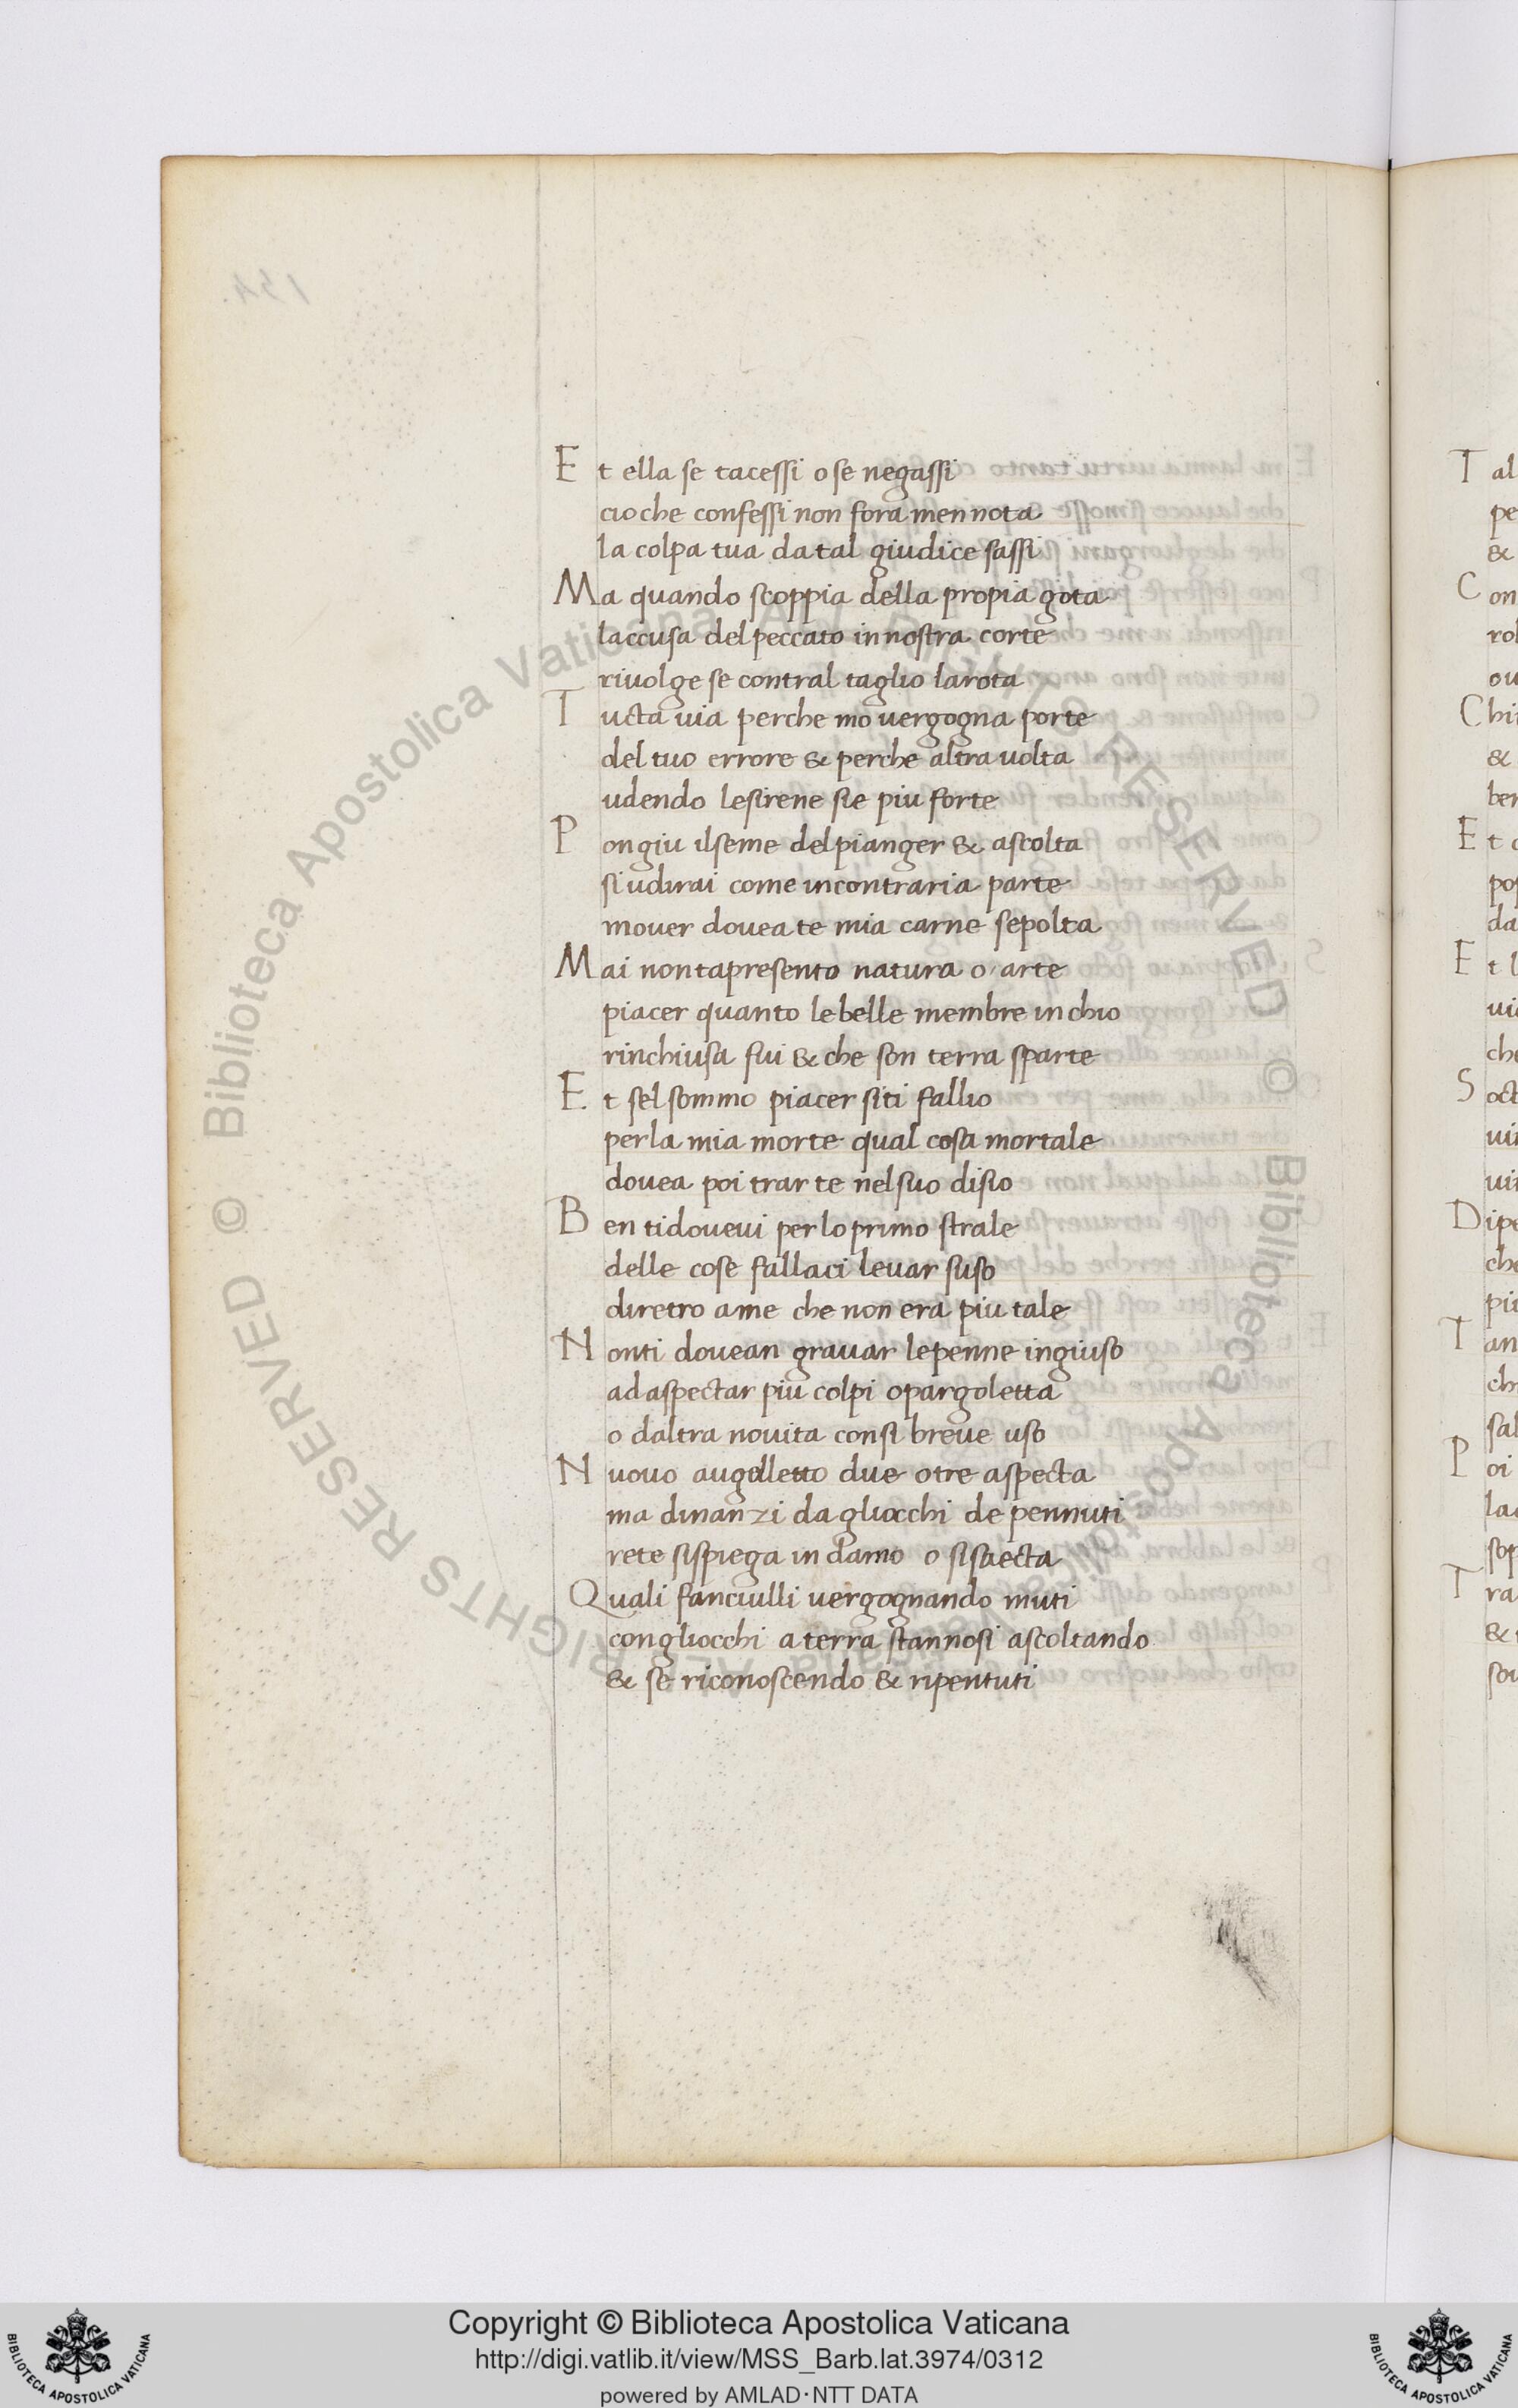 Et ella se tacessi o se negassi
cio che confessi non fora men nota
la colpa tua da tal giudice sassi
Ma quando scoppia della propia gota
laccusa del peccato in nostra corte
rivolge se contral taglio la rota
Tucta via perche mo vergogna porte
del tuo errore & perche altra volta
udendo le sirene sie piu forte
Pon giu il seme del pianger & ascolta
si udirai come in contraria parte
mover dovea te mia carne sepolta
Mai non tapresento natura o arte
piacer quanto le belle membre in chio
rinchiusa fui & che son terra sparte
Et sel sommo piacer si ti fallio
per la mia morte qual cosa mortale
dovea poi trar te nel suo disio
Ben ti dovevi per lo primo strale
delle cose fallaci levar suso
diretro a me che non era piu tale
Non ti dovean gravar le penne ingiuso
ad aspectar piu colpi o pargoletta
o daltra novita con si breve uso
Nuovo augelletto due o tre aspecta
ma dinanzi da gliocchi de pennuti
rete si spiega indarno o si saecta
Quali fanciulli vergognando muti
con gliocchi a terra stannosi ascoltando
& se riconoscendo & ripentuti
134.
© Biblioteca Apostolica Vaticana ALL RIGHTS RESERVED © Biblioteca Apostolica Vaticana ALL RIGHTS RESERVED
Copyright © Biblioteca Apostolica Vaticana
http://digi.vatlib.it/view/MSS_Barb.lat.3974/0312
powered by AMLAD·NTT DATA
BIBLIOTECA APOSTOLICA VATICANA
BIBLIOTECA APOSTOLICA VATICANA